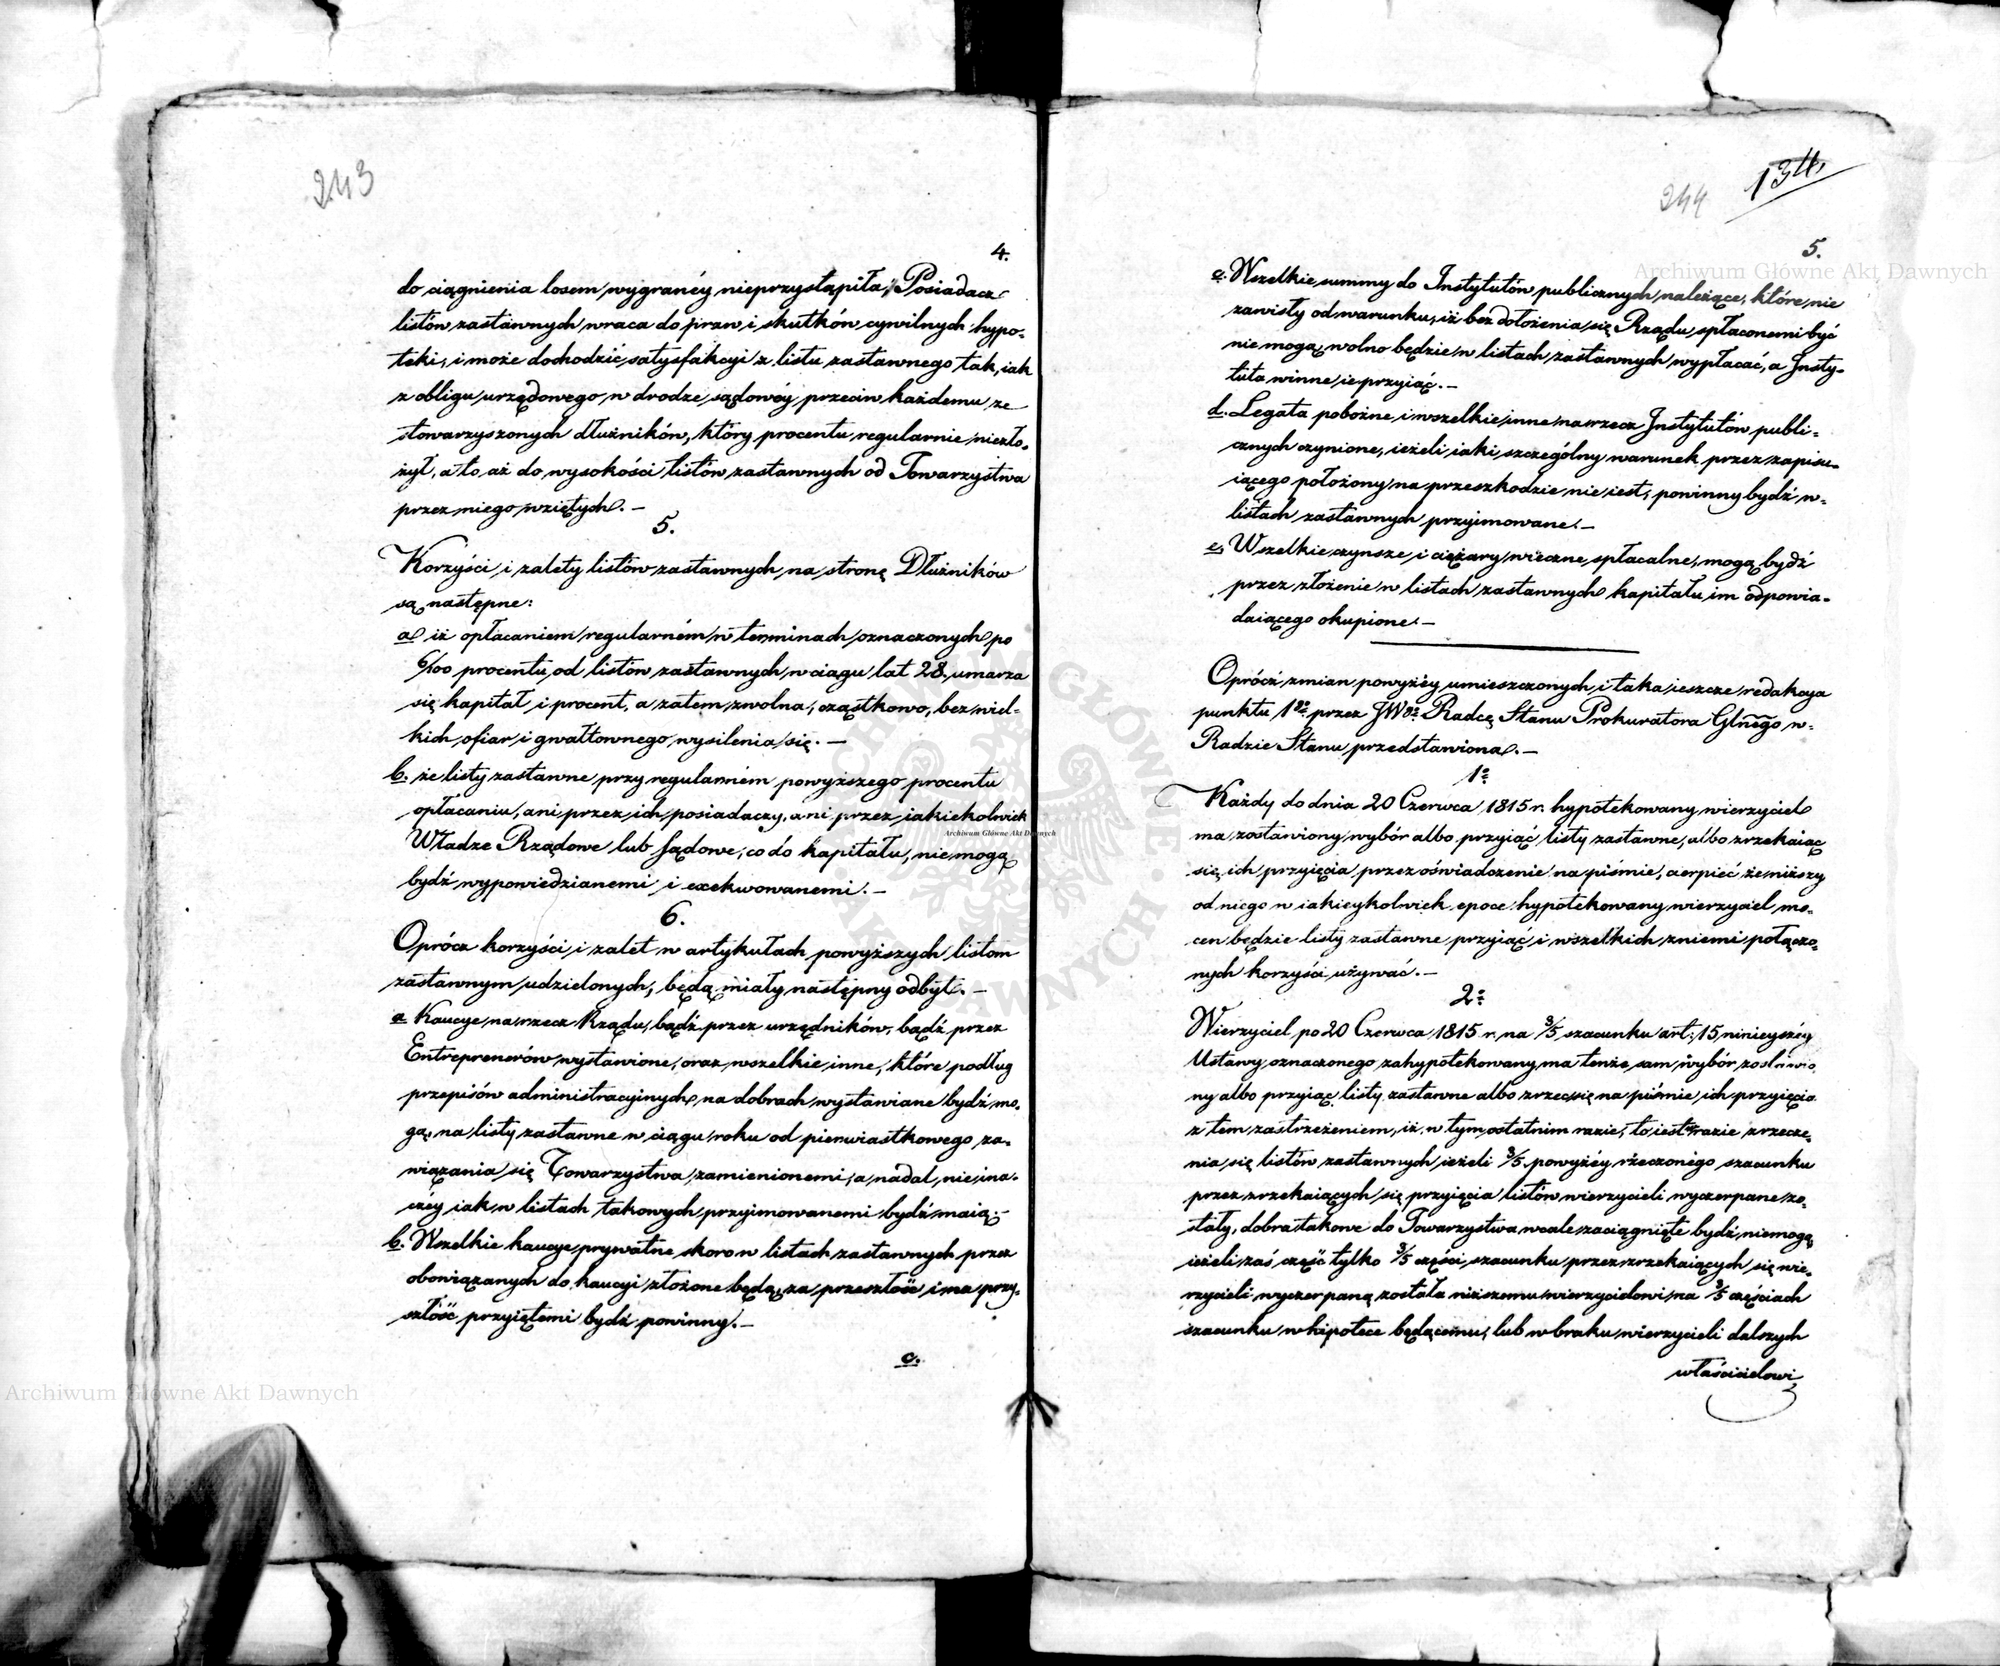 243
4.
do ciągnienia losem wygranéy nieprzystąpiła, Posiadacz
listów zastawnych wraca do praw i skutków cywilnych hypo-
teki, i może dochodzić satysfakcyi z listu zastawnego tak, iak
z obligu urzędowego, w drodze sądowéy przeciw każdemu ze
stowarzyszonych dłużników, który procentu regularnie niezło-
żył, a to aż do wysokości listów zastawnych od Towarzystwa
przez niego wziętych. –
5.
Korzyści i zalety listów zastawnych na stronę Dłużników
są następne:
a iż opłacaniem regularném w terminach oznaczonych po
6/100 procentu od listów zastawnych w ciągu lat 28. umarza
się kapitał i procent, a zatem zwolna, cząstkowo, bez wiel-
kich ofiar i gwałtownego wysilenia się. –
b. że listy zastawne przy regularném powyższego procentu
opłacaniu, ani przez ich posiadaczy, ani przez iakiekolwiek
Władze Rządowe lub Sądowe, co do kapitału, nie mogą
bydź wypowiedzianemi i exekwowanemi. –
6.
Oprócz korzyści i zalet w artykułach powyższych listom
zastawnym udzielonych, będą miały następny odbyt. –
a Kaucye na rzecz Rządu, bądź przez urzędników, bądź przez
Entreprenerów wystawione, oraz wszelkie inne, które podług
przepisów administracyinych na dobrach wystawiane bydź mo-
gą, na listy zastawne w ciągu roku od pierwiastkowego za-
wiązania się Towarzystwa, zamienionemi, a nadal, nie ina-
czéy iak w listach takowych przyimowanemi bydź maią. –
b. Wszelkie kaucye prywatne skoro w listach zastawnych przez
obowiązanych do kaucyi złożone będą, za przeszłość i na przy-
szłość przyiętemi bydź powinny. –
c.
244
134.
5.
c. Wszelkie summy do Instytutów publicznych należące, które nie
zawisły od warunku, iż bez dołożenia się Rządu spłaconemi być
nie mogą, wolno będzie w listach zastawnych wypłacać, a Insty-
tuta winne ie przyiąć. –
d. Legata pobożne i wszelkie inne na rzecz Instytutów publi-
cznych czynione, ieżeli iaki szczególny warunek przez zapisu-
iącego położony na przeszkodzie nie iest, powinny bydź w-
listach zastawnych przyimowane. –
e. Wszelkie czynsze i ciężary wieczne spłacalne, mogą bydź
przez złożenie w listach zastawnych kapitału im odpowia-
daiącego okupione. –
Oprócz zmian powyżéy umieszczonych i taka ieszcze redakcya
punktu 1go przez JWgo Radcę Stanu Prokuratora Glnego w-
Radzie Stanu przedstawiona. –
1o
Każdy do dnia 20 Czerwca 1815 r. hypotekowany wierzyciel
ma zostawiony wybór albo przyiąć listy zastawne, albo zrzekaiąc
się ich przyięcia przez oświadczenie na piśmie, cierpieć że niższy
od niego w iakieykolwiek epoce hypotekowany wierzyciel mo-
cen będzie listy zastawne przyiąć i wszelkich z niemi połączo-
nych korzyści używać. –
2o
Wierzyciel po 20 Czerwca 1815 r. na 3/5 szacunku art: 15 ninieyszéy
Ustawy oznaczonego zahypotekowany, ma tenże sam wybór zostawio-
ny albo przyiąć listy zastawne albo zrzec się na piśmie ich przyięcia
z tem zastrzeżeniem, iż w tym ostatnim razie, to iest w razie zrzecze-
nia się listów zastawnych ieżeli 3/5 powyżéy rzeczonégo szacunku
przez zrzekaiących się przyięcia listów wierzycieli wyczerpane zo-
stały, dobra takowe do Towarzystwa wcale zaciągnięte bydź niemogą
ieżeli zaś część tylko 3/5 części szacunku przez zrzekaiących się wie-
rzycieli wyczerpaną została niższemu wierzycielowi na 3/5 częściach
szacunku w hipotece będącemu, lub w braku wierzycieli dalszych
właścicielowi
Archiwum Główne Akt Dawnych
Archiwum Główne Akt Dawnych
Archiwum Główne Akt Dawnych